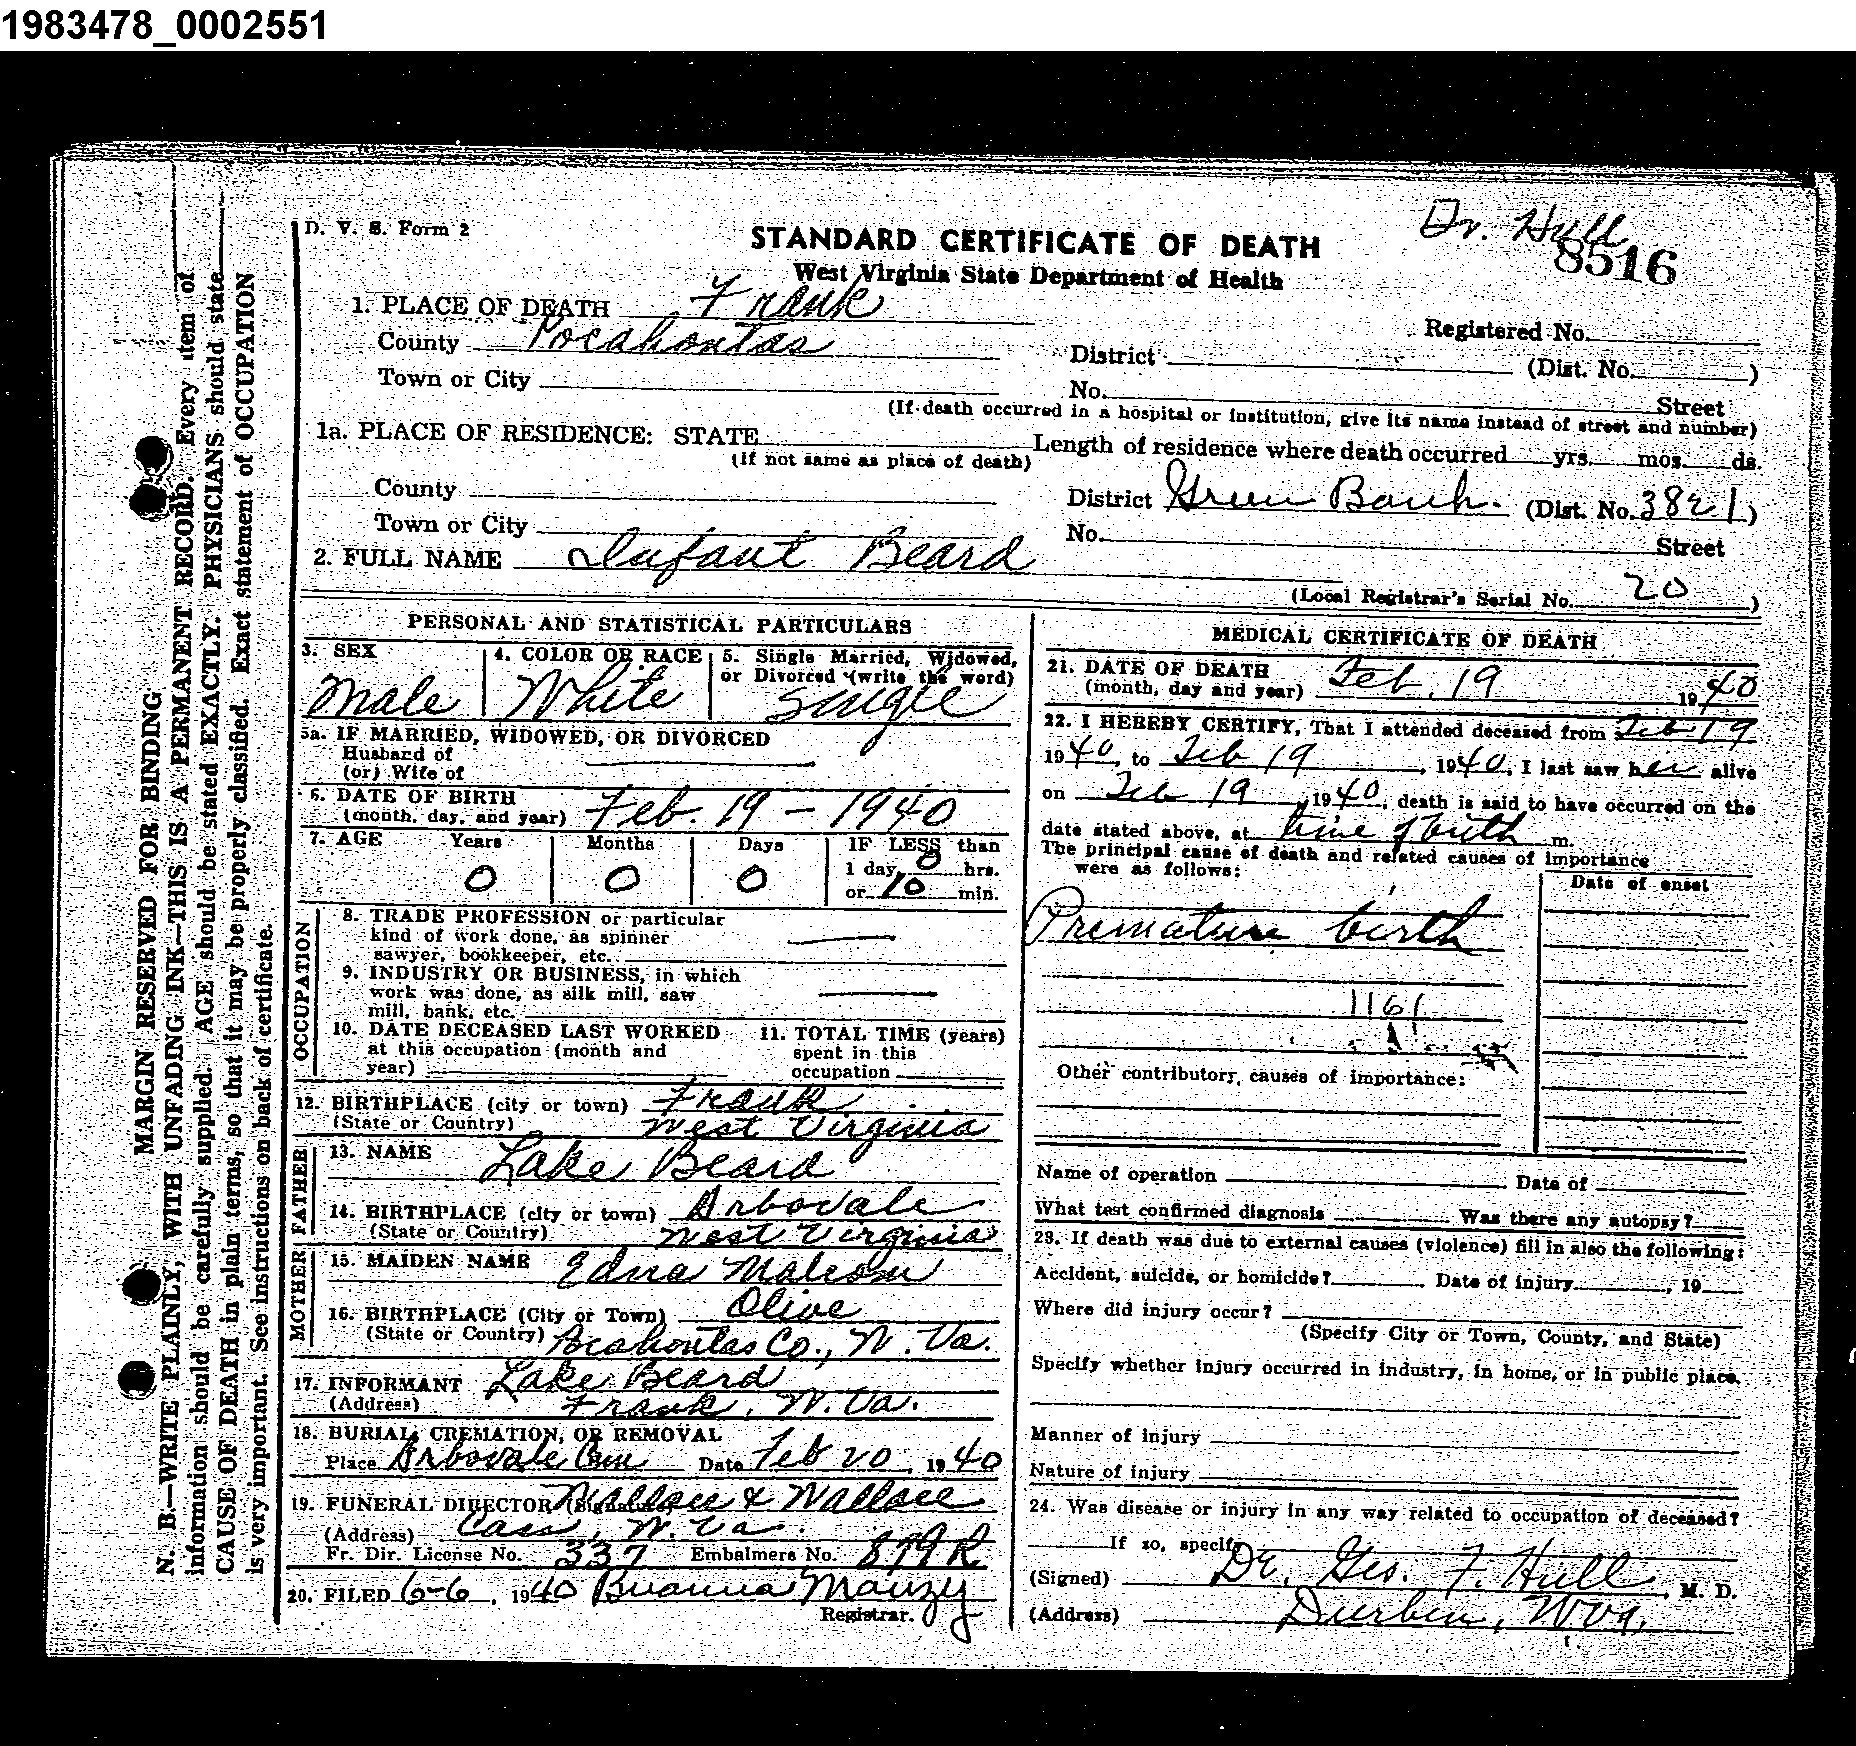 1983478_0002551
D. V. S. Form 2
Dr. Hull
STANDARD CERTIFICATE OF DEATH
8516
West Virginia State Department of Health
1. PLACE OF DEATH Frank
Registered No.
County Pocahontas
District (Dist. No. )
Town or City
No. Street
(If death occurred in a hospital or institution, give its name instead of street and number)
1a. PLACE OF RESIDENCE: STATE
(If not same as place of death)
Length of residence where death occurred yrs. mos. ds.
County
District Green Bank. (Dist. No. 3821)
Town or City
No. Street
2. FULL NAME Infant Beard
(Local Registrar's Serial No. 20 )
PERSONAL AND STATISTICAL PARTICULARS
3. SEX Male
4. COLOR OR RACE White
5. Single Married, Widowed, or Divorced (write the word) Single
5a. IF MARRIED, WIDOWED, OR DIVORCED
Husband of
(or) Wife of
6. DATE OF BIRTH
(month, day, and year) Feb. 19 - 1940
7. AGE Years Months Days IF LESS than
0 0 0 1 day 0 hrs.
or 10 min.
OCCUPATION
8. TRADE PROFESSION or particular
kind of work done, as spinner
sawyer, bookkeeper, etc.
9. INDUSTRY OR BUSINESS, in which
work was done, as silk mill, saw
mill, bank, etc.
10. DATE DECEASED LAST WORKED
at this occupation (month and
year)
11. TOTAL TIME (years)
spent in this
occupation
12. BIRTHPLACE (city or town) Frank
(State or Country) West Virginia
FATHER
13. NAME Lake Beard
14. BIRTHPLACE (city or town) Arbovale
(State or Country) West Virginia
MOTHER
15. MAIDEN NAME Edna Malcom
16. BIRTHPLACE (City or Town) Olive
(State or Country) Pocahontas Co., W. Va.
17. INFORMANT Lake Beard
(Address) Frank, W. Va.
18. BURIAL, CREMATION, OR REMOVAL
Place Arbovale Cem Date Feb 20, 1940
19. FUNERAL DIRECTOR (Signature) Wallace & Wallace
(Address) Cass, W. Va.
Fr. Dir. License No. 337 Embalmers No. 879R
20. FILED 6-6, 1940 Mauzy
Registrar.
MEDICAL CERTIFICATE OF DEATH
21. DATE OF DEATH
(month, day and year) Feb. 19 1940
22. I HEREBY CERTIFY, That I attended deceased from Feb 19
1940, to Feb 19, 1940, I last saw him alive
on Feb 19, 1940, death is said to have occurred on the
date stated above, at time of birth m.
The principal cause of death and related causes of importance
were as follows:
Date of onset
Premature birth
1161
Other contributory causes of importance:
Name of operation Date of
What test confirmed diagnosis Was there any autopsy?
23. If death was due to external causes (violence) fill in also the following:
Accident, suicide, or homicide? Date of injury , 19
Where did injury occur?
(Specify City or Town, County, and State)
Specify whether injury occurred in industry, in home, or in public place.
Manner of injury
Nature of injury
24. Was disease or injury in any way related to occupation of deceased?
If so, specify
(Signed) Dr. Geo. F. Hull, M. D.
(Address) Durbin, W Va.
MARGIN RESERVED FOR BINDING
N. B.—WRITE PLAINLY, WITH UNFADING INK—THIS IS A PERMANENT RECORD. Every item of
information should be carefully supplied. AGE should be stated EXACTLY. PHYSICIANS should state
CAUSE OF DEATH in plain terms, so that it may be properly classified. Exact statement of OCCUPATION
is very important. See instructions on back of certificate.